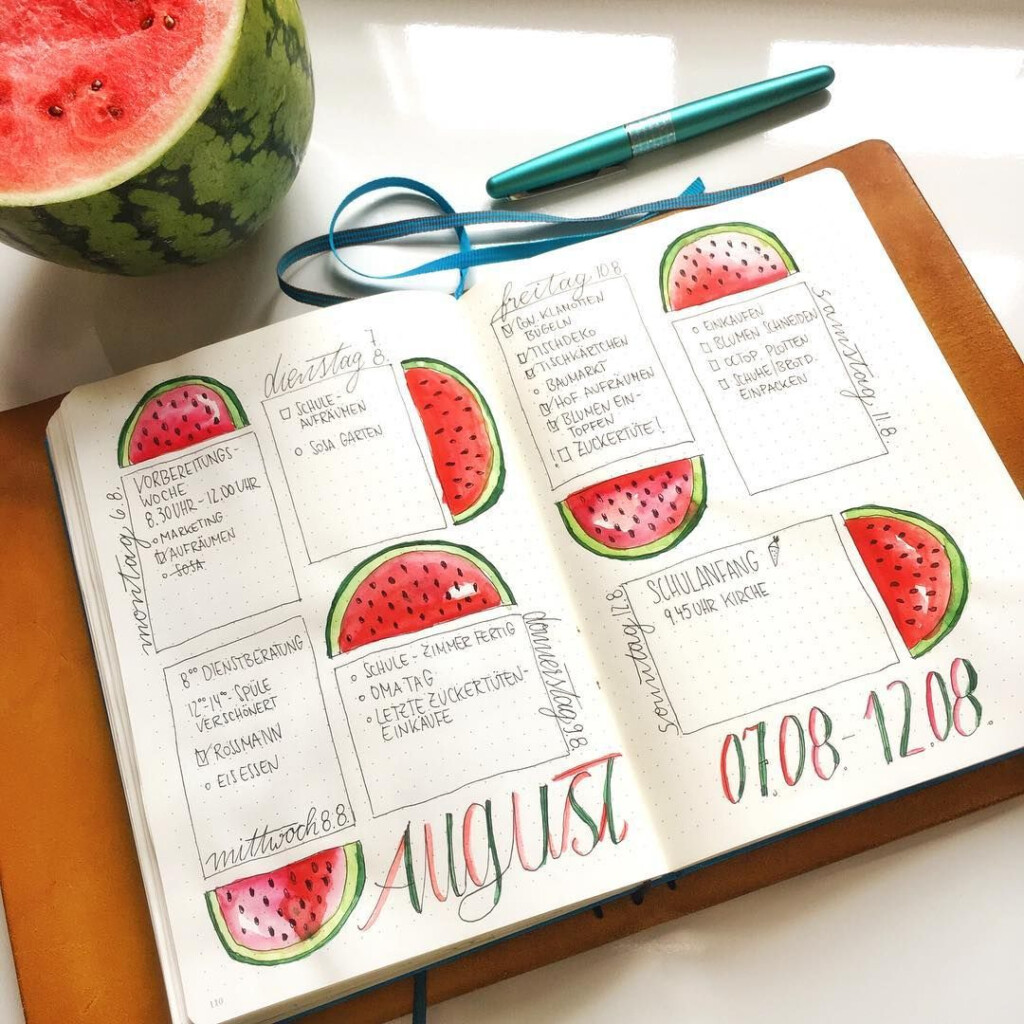 montag 6.8.
VORBEREITUNGS-
WOCHE
8.30UHR-12.00UHR
MARKETING
AUFRÄUMEN
SOSA
dienstag 7.8.
SCHULE-
AUFRÄUMEN
SOSA GARTEN
8⁰⁰ DIENSTBERATUNG
12⁰⁰-14⁰⁰- SPÜLE
VERSCHÖNERT
ROSSMANN
EIS ESSEN
mittwoch 8.8.
donnerstag 9.8.
SCHULE - ZIMMER FERTIG
OMA TAG
LETZTE ZUCKERTÜTEN-
EINKÄUFE
AUGUST
110
freitag 10.8
KLAMOTTEN
BÜGELN
TISCHDEKO
TISCHKÄRTCHEN
BAUMARKT
HOF AUFRÄUMEN
BLUMEN EIN-
TOPFEN
! ZUCKERTÜTE!
samstag 11.8.
EINKAUFEN
BLUMEN SCHNEIDEN
OCTOP. PLOTTEN
SCHUHE/BROTD.
EINPACKEN
sonntag 12.8
SCHULANFANG
9.45 UHR KIRCHE
07.08.-12.08.